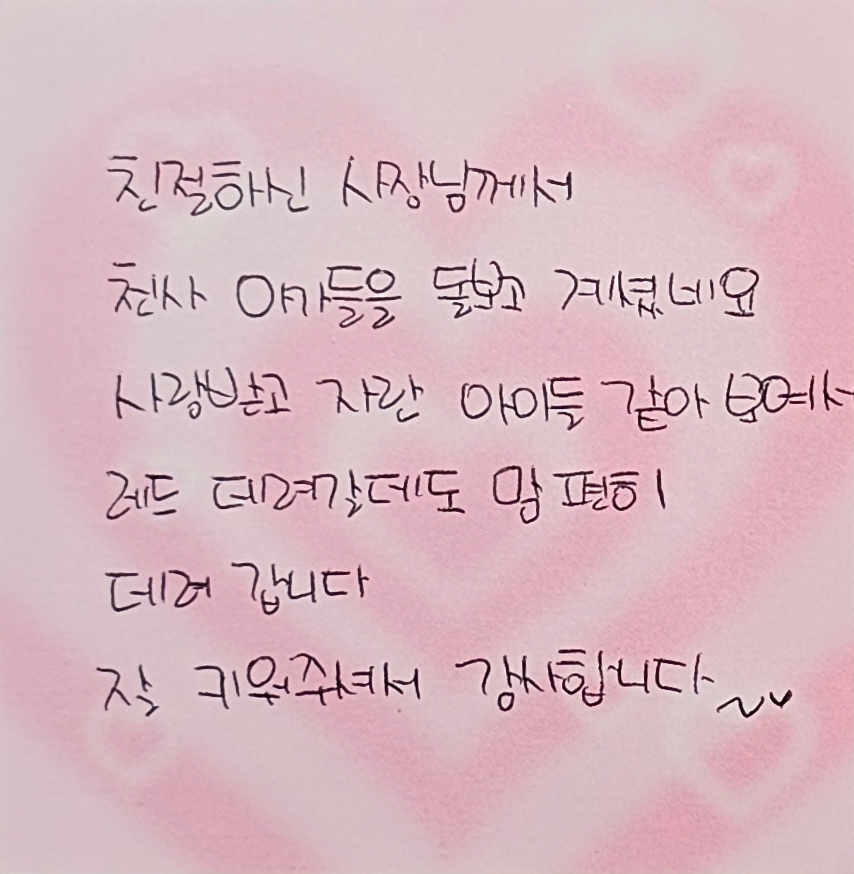 친절하신 사장님께서
천사 아가들을 돌보고 계셨네요
사랑받고 자란 아이들 같아 보여서
레드 데려갈데도 맘 편히
데려 갑니다
잘 키워주셔서 감사합니다~